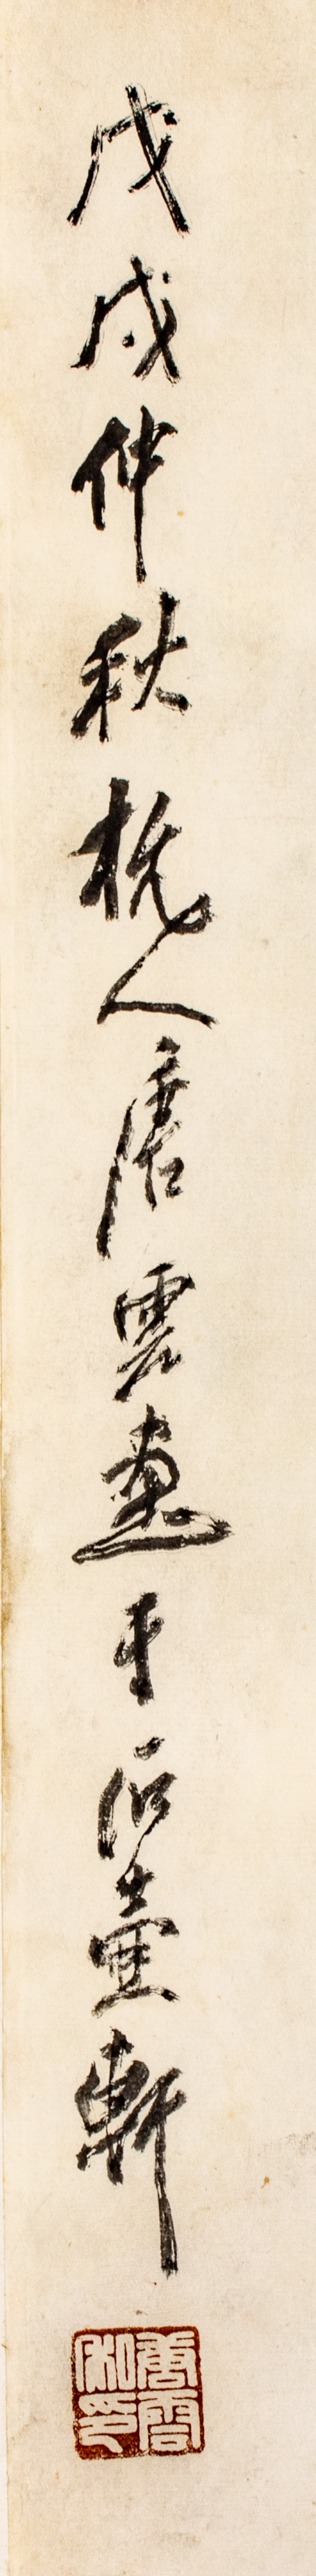 戊戌仲秋杭人唐雲畫于石壺軒
唐雲私印